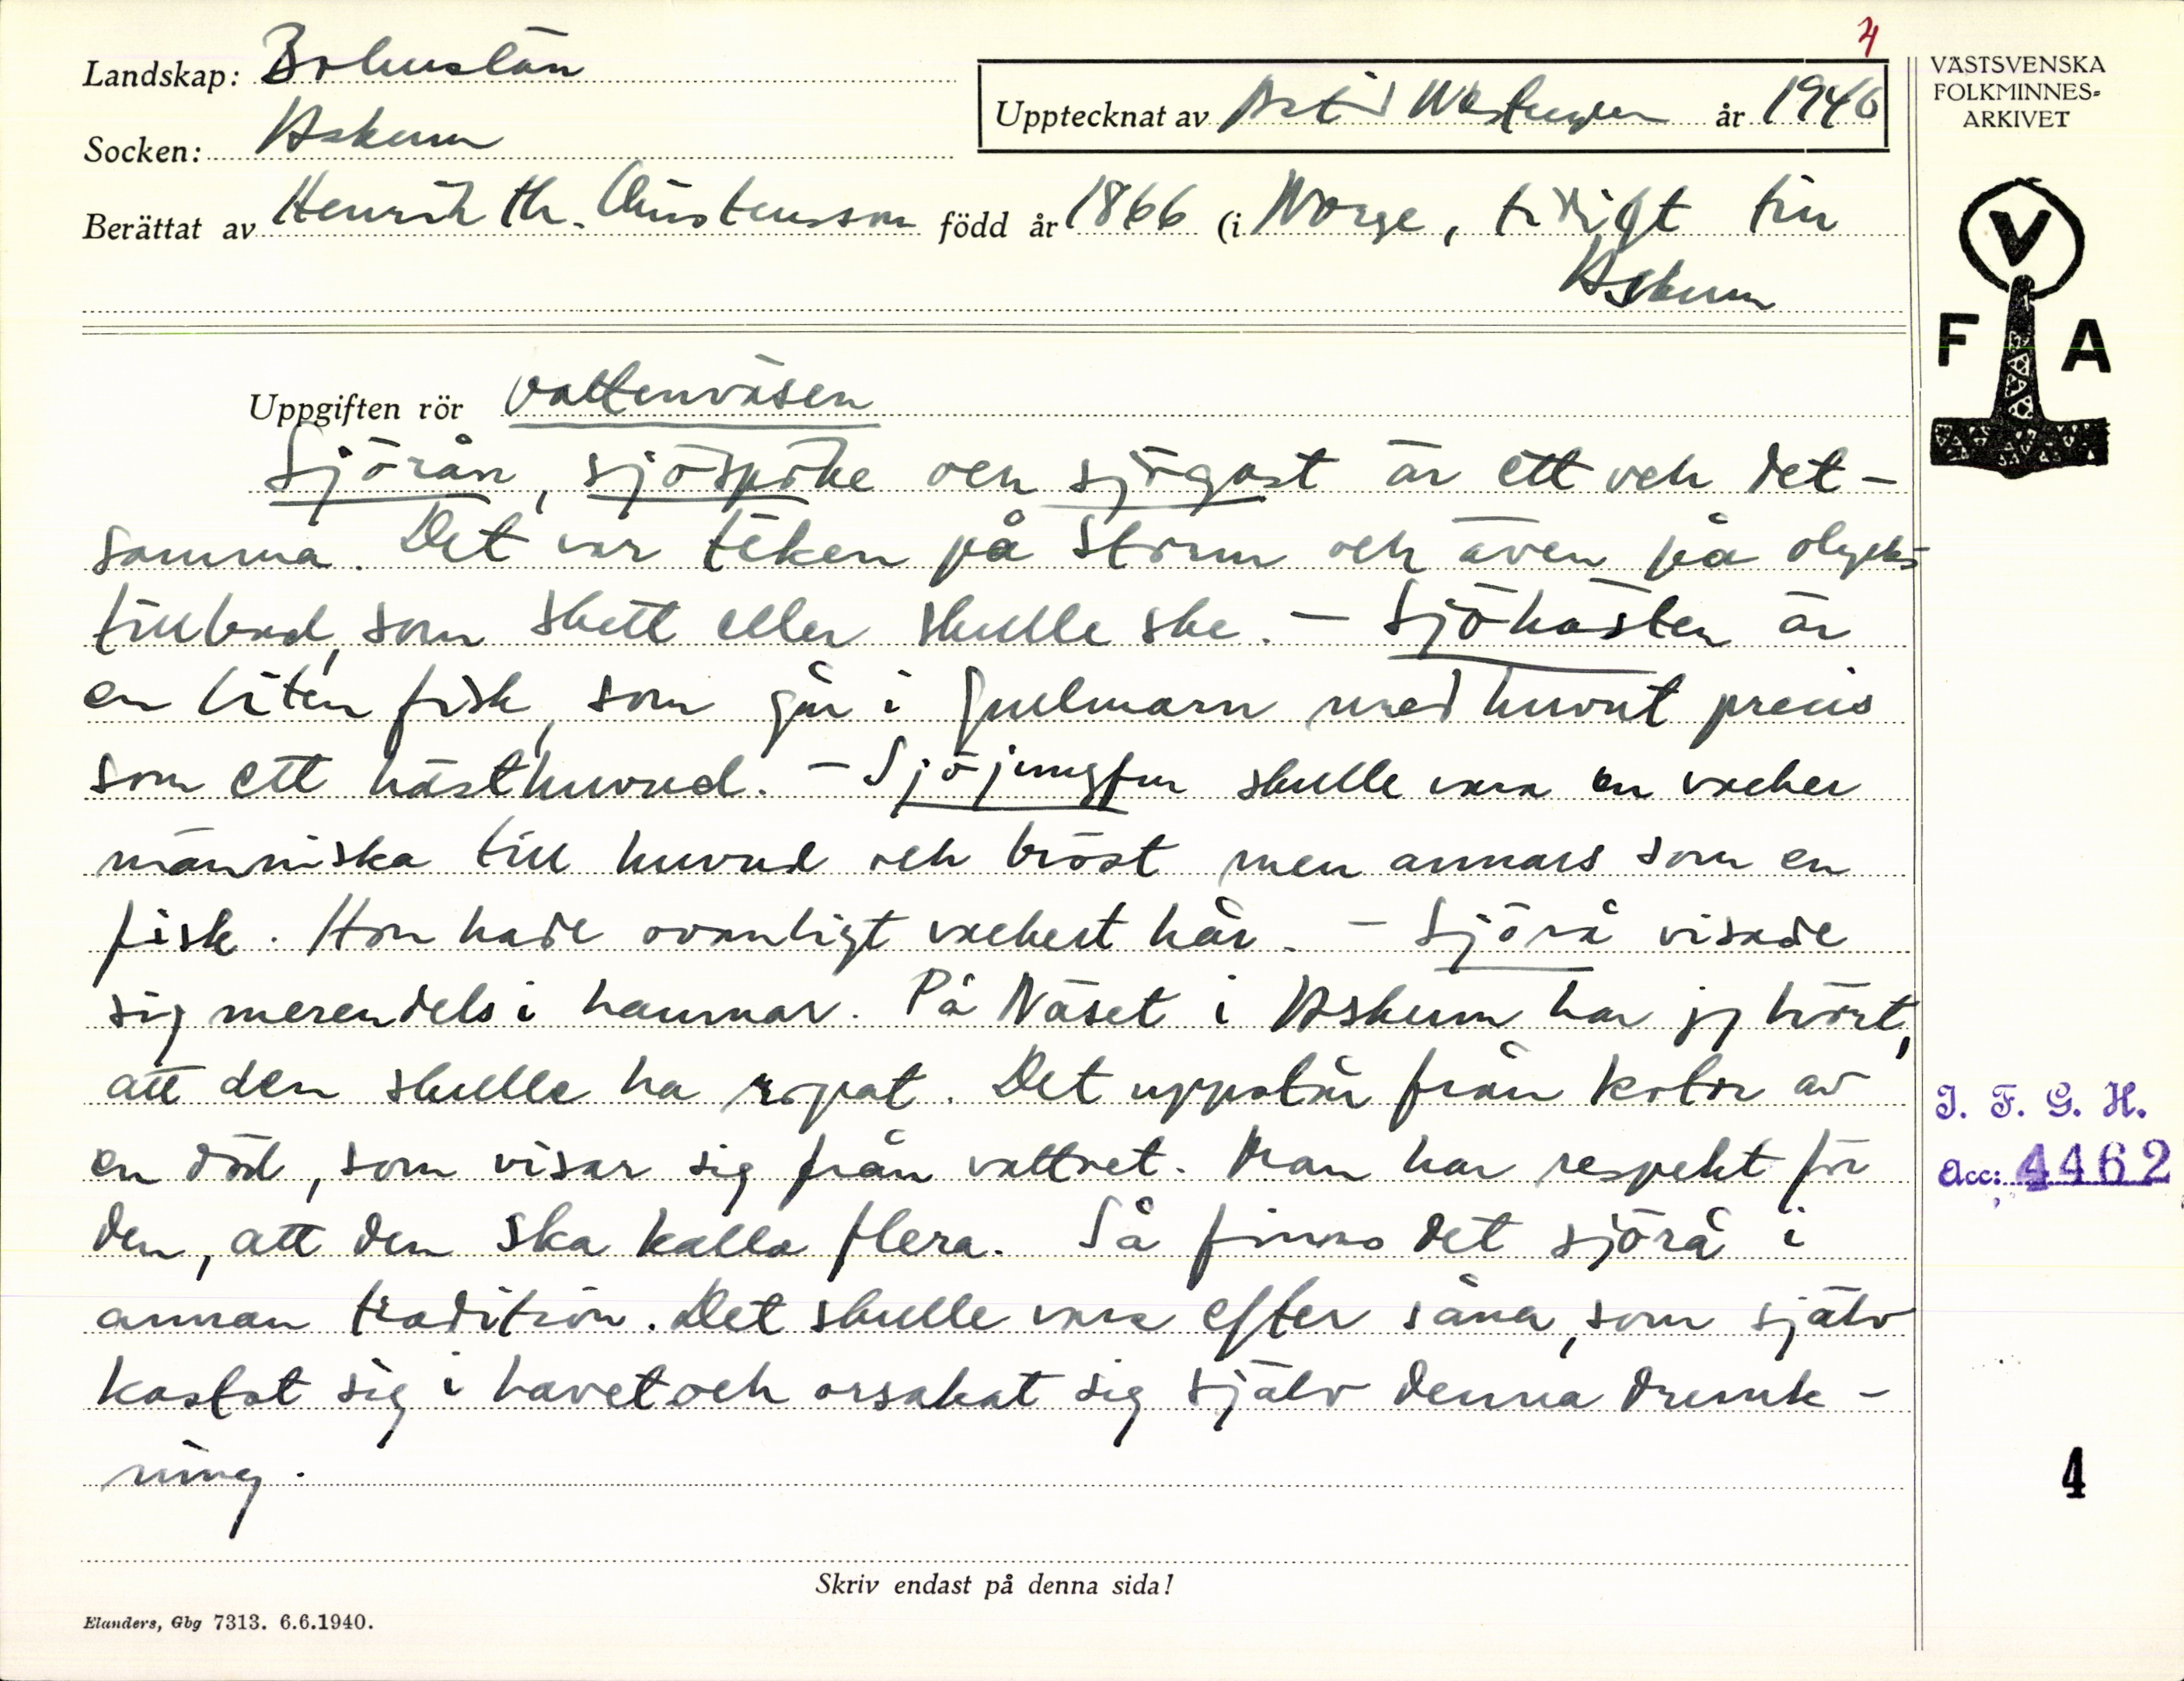 4
Landskap: Bohuslän
Socken: Askum
Upptecknat av Astrid år 1940
Berättat av Henrik Th. Christensson född år 1866 (i Norge, tidigt till
Askum
VÄSTSVENSKA
FOLKMINNES-
ARKIVET
V
F A
Uppgiften rör vattenväsen
Sjörån, sjöspöke och sjögast är ett och det-
samma. Det var teken på storm och även på olycks-
tillbud, som skett eller skulle ske. - Sjöhästen är
en liten fisk, som går i Gullmarn med huvut precis
som ett hästhuvud. - Sjöjungfru skulle vara en vacker
människa till huvud och bröst men annars som en
fisk. Hon hade ovanligt vackert hår. - Sjörå visade
sig merendels i hamnar. På Näset i Askum har jag hört,
att den skulle ha ropat. Det uppstår från kotor av
en död, som visar sig från vattnet. Man har respekt för
den, att den ska kalla flera. Så finns det sjörå i
annan tradition. Det skulle vara efter såna, som själv
kastat sig i havet och orsakat sig själv denna drunk-
ning.
J. F. G. H.
Acc: 4462
4
Skriv endast på denna sida!
Elanders, Gbg 7313. 6.6.1940.